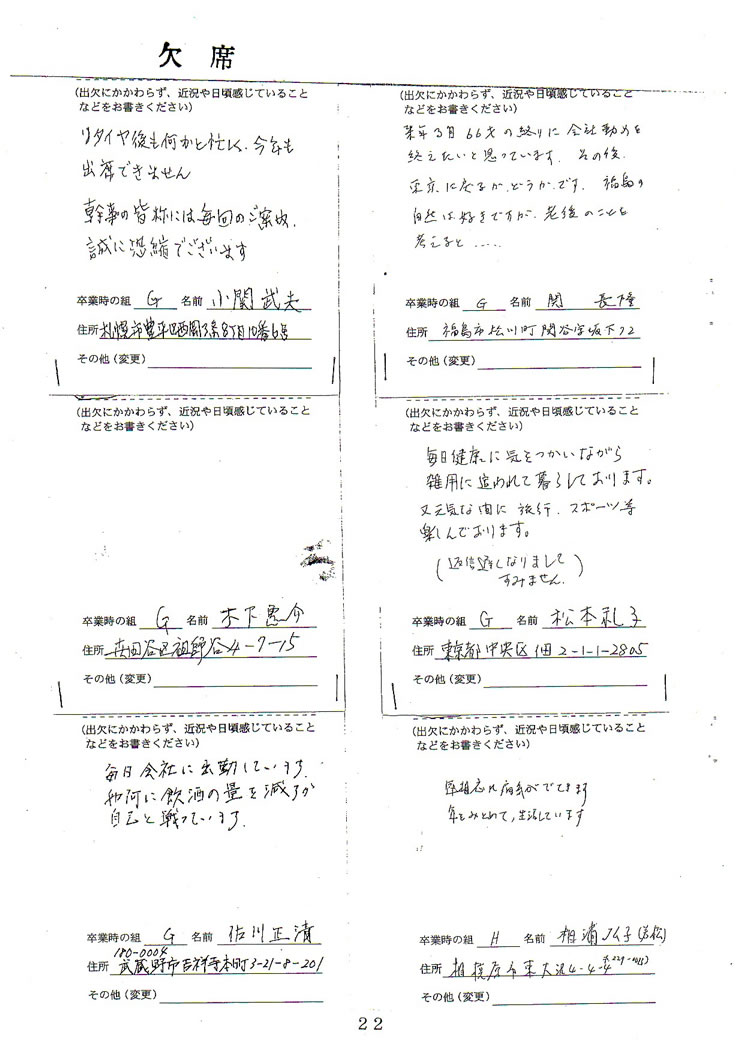 欠席
(出欠にかかわらず、近況や日頃感じていること
などをお書きください)
リタイヤ後も何かと忙しく、今年も
出席できません
幹事の皆様には毎回のご案内、
誠に恐縮でございます
卒業時の組 G 名前 小関武夫
住所 札幌市豊平区西岡3条8丁目10番6号
その他(変更)
(出欠にかかわらず、近況や日頃感じていること
などをお書きください)
来年3月66才の終りに会社勤めを
終えたいと思っています. その後、
東京に戻るか、どうかです. 福島の
自然は好きですが、老後のことを
考えると.....
卒業時の組 G 名前 関
住所 福島市松川町関谷字坂下72
その他(変更)
(出欠にかかわらず、近況や日頃感じていること
などをお書きください)
卒業時の組 G 名前 木下恵介
住所 世田谷区祖師谷4-7-15
その他(変更)
(出欠にかかわらず、近況や日頃感じていること
などをお書きください)
毎日健康に気をつかいながら
雑用に追われて暮らしております。
又元気な内に旅行、スポーツ等
楽しんでおります。
(返信遅くなりまして
すみません.)
卒業時の組 G 名前 松本礼子
住所 東京都中央区佃2-1-1-2805
その他(変更)
(出欠にかかわらず、近況や日頃感じていること
などをお書きください)
毎日会社に出勤しています.
如何に飲酒の量を減すか
自己と戦っています.
卒業時の組 G 名前 佐川正
180-0004
住所 武蔵野市吉祥寺本町3-21-8-201
その他(変更)
(出欠にかかわらず、近況や日頃感じていること
などをお書きください)
年をみとめて,生活しています
卒業時の組 H 名前 相浦
住所 相模原市東大沼4-4-4
その他(変更)
22